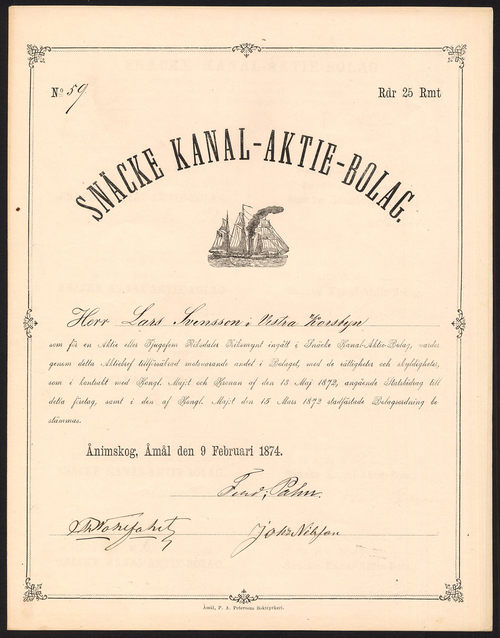 No 59
Rdr 25 Rmt
SNÄCKE KANAL-AKTIE-BOLAG.
Herr Lars Svensson i Vestra Korsbyn
som för en Aktie eller Tjugofem Riksdaler Riksmynt ingått i Snäcke Kanal-Aktie-Bolag, varder
genom detta Aktiebref tillförsäkrad motsvarande andel i Bolaget, med de rättigheter och skyldigheter,
som i kontrakt med Kongl. Maj:t och Kronan af den 13 Maj 1872, angående Statsbidrag till
detta företag, samt i den af Kongl. Maj:t den 15 Mars 1872 stadfästade Bolagsordning be-
stämmas.
Ånimskog, Åmål den 9 Februari 1874.
Ferd; Palm.
Joh: Nilsson
Åmål, P. A. Petersons Boktryckeri.